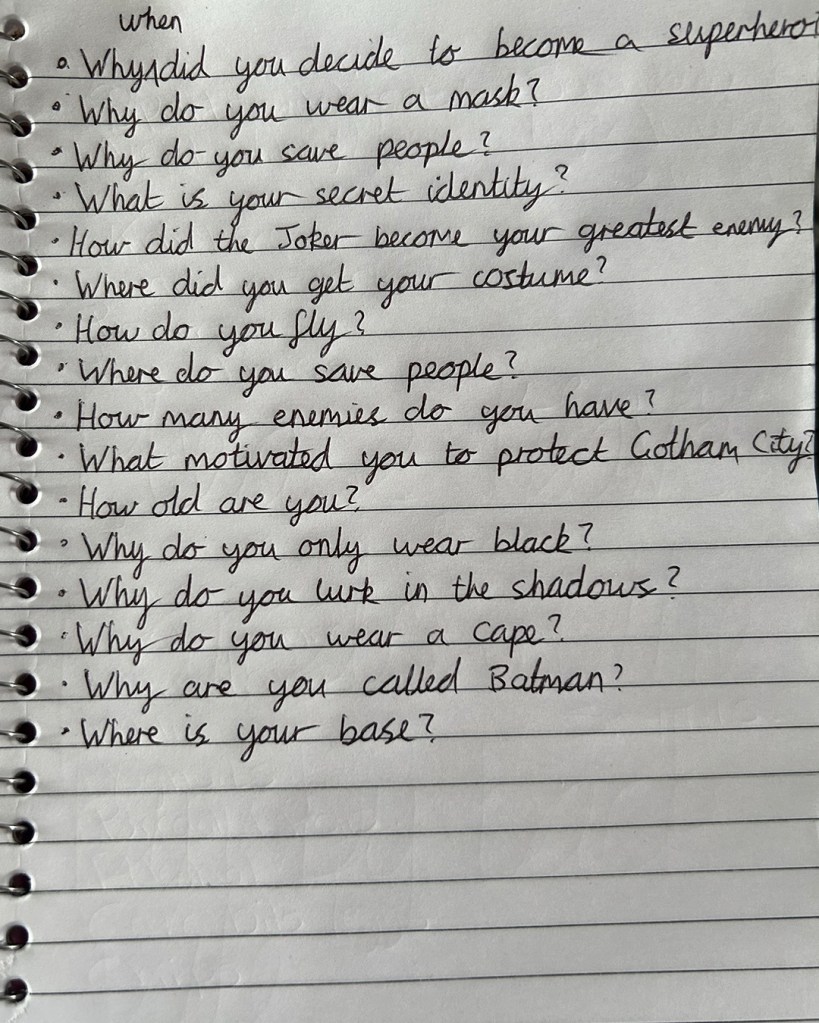 when
• Why ^ did you decide to become a superhero?
• Why do you wear a mask?
• Why do you save people?
• What is your secret identity?
• How did the Joker become your greatest enemy?
• Where did you get your costume?
• How do you fly?
• Where do you save people?
• How many enemies do you have?
• What motivated you to protect Gotham City?
• How old are you?
• Why do you only wear black?
• Why do you lurk in the shadows?
• Why do you wear a cape?
• Why are you called Batman?
• Where is your base?